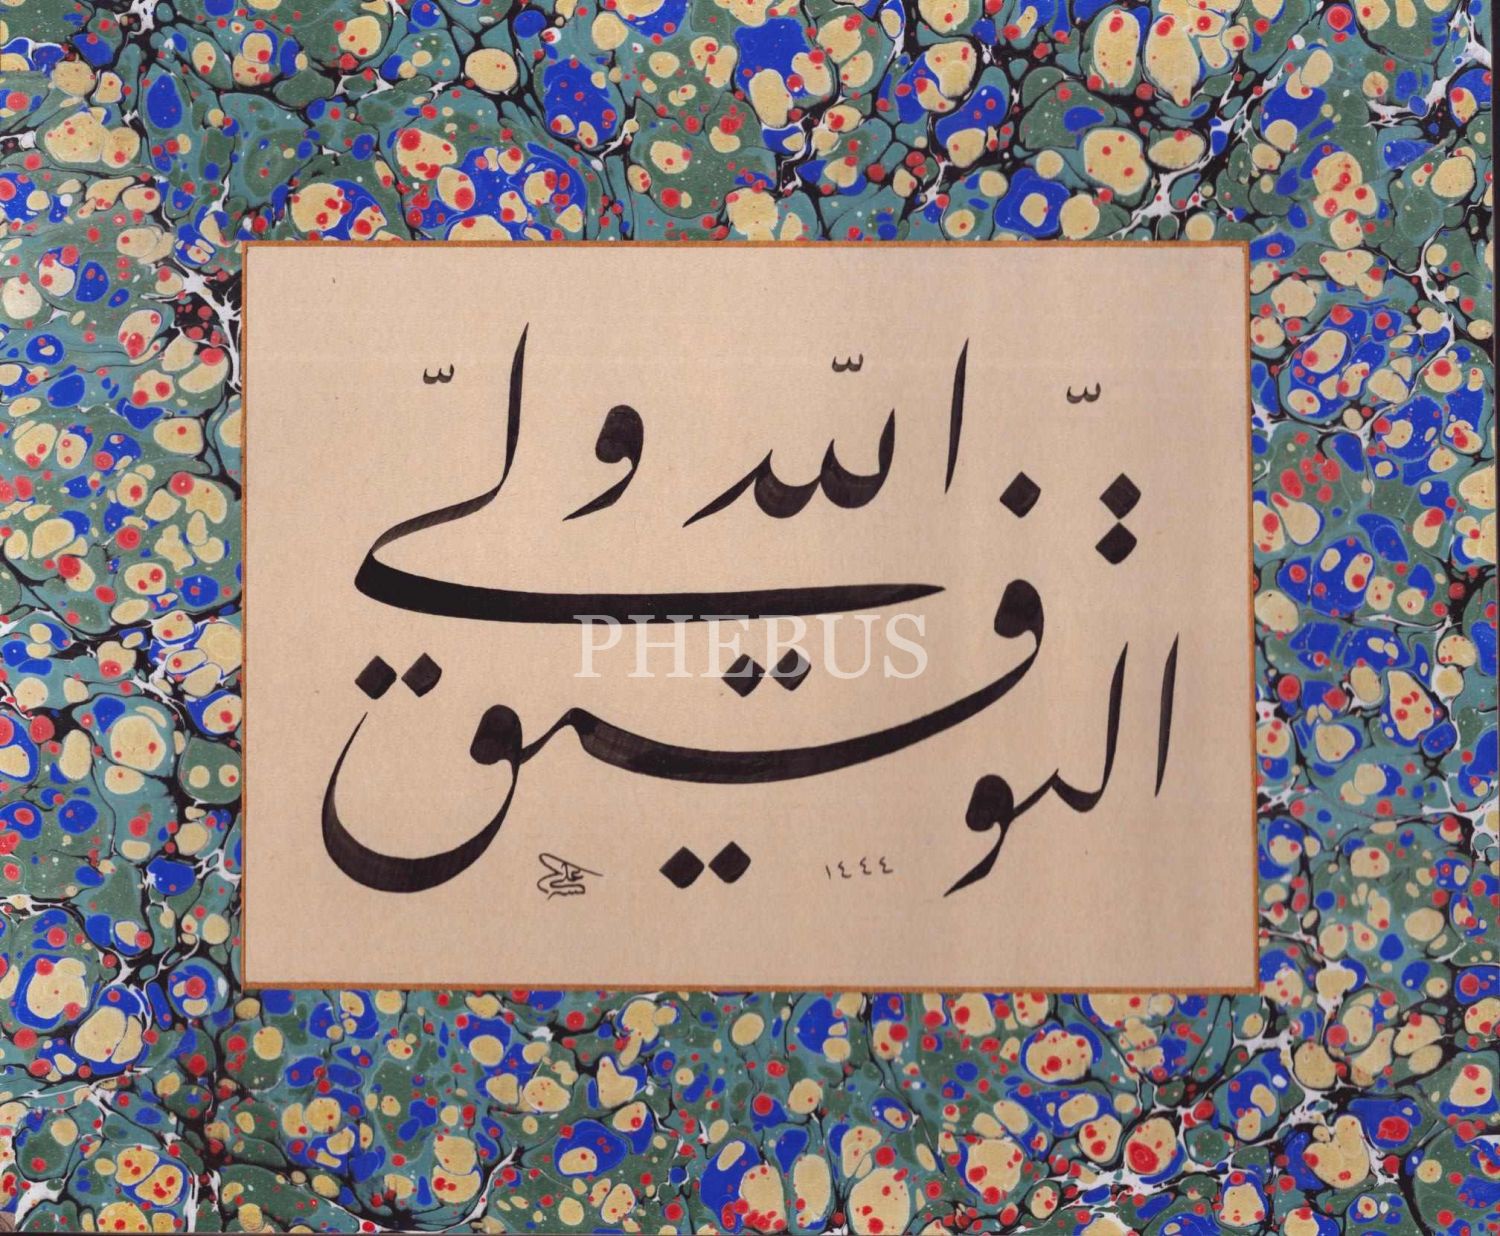 الله ولي
التوفيق
١٤٤٤
PHEBUS